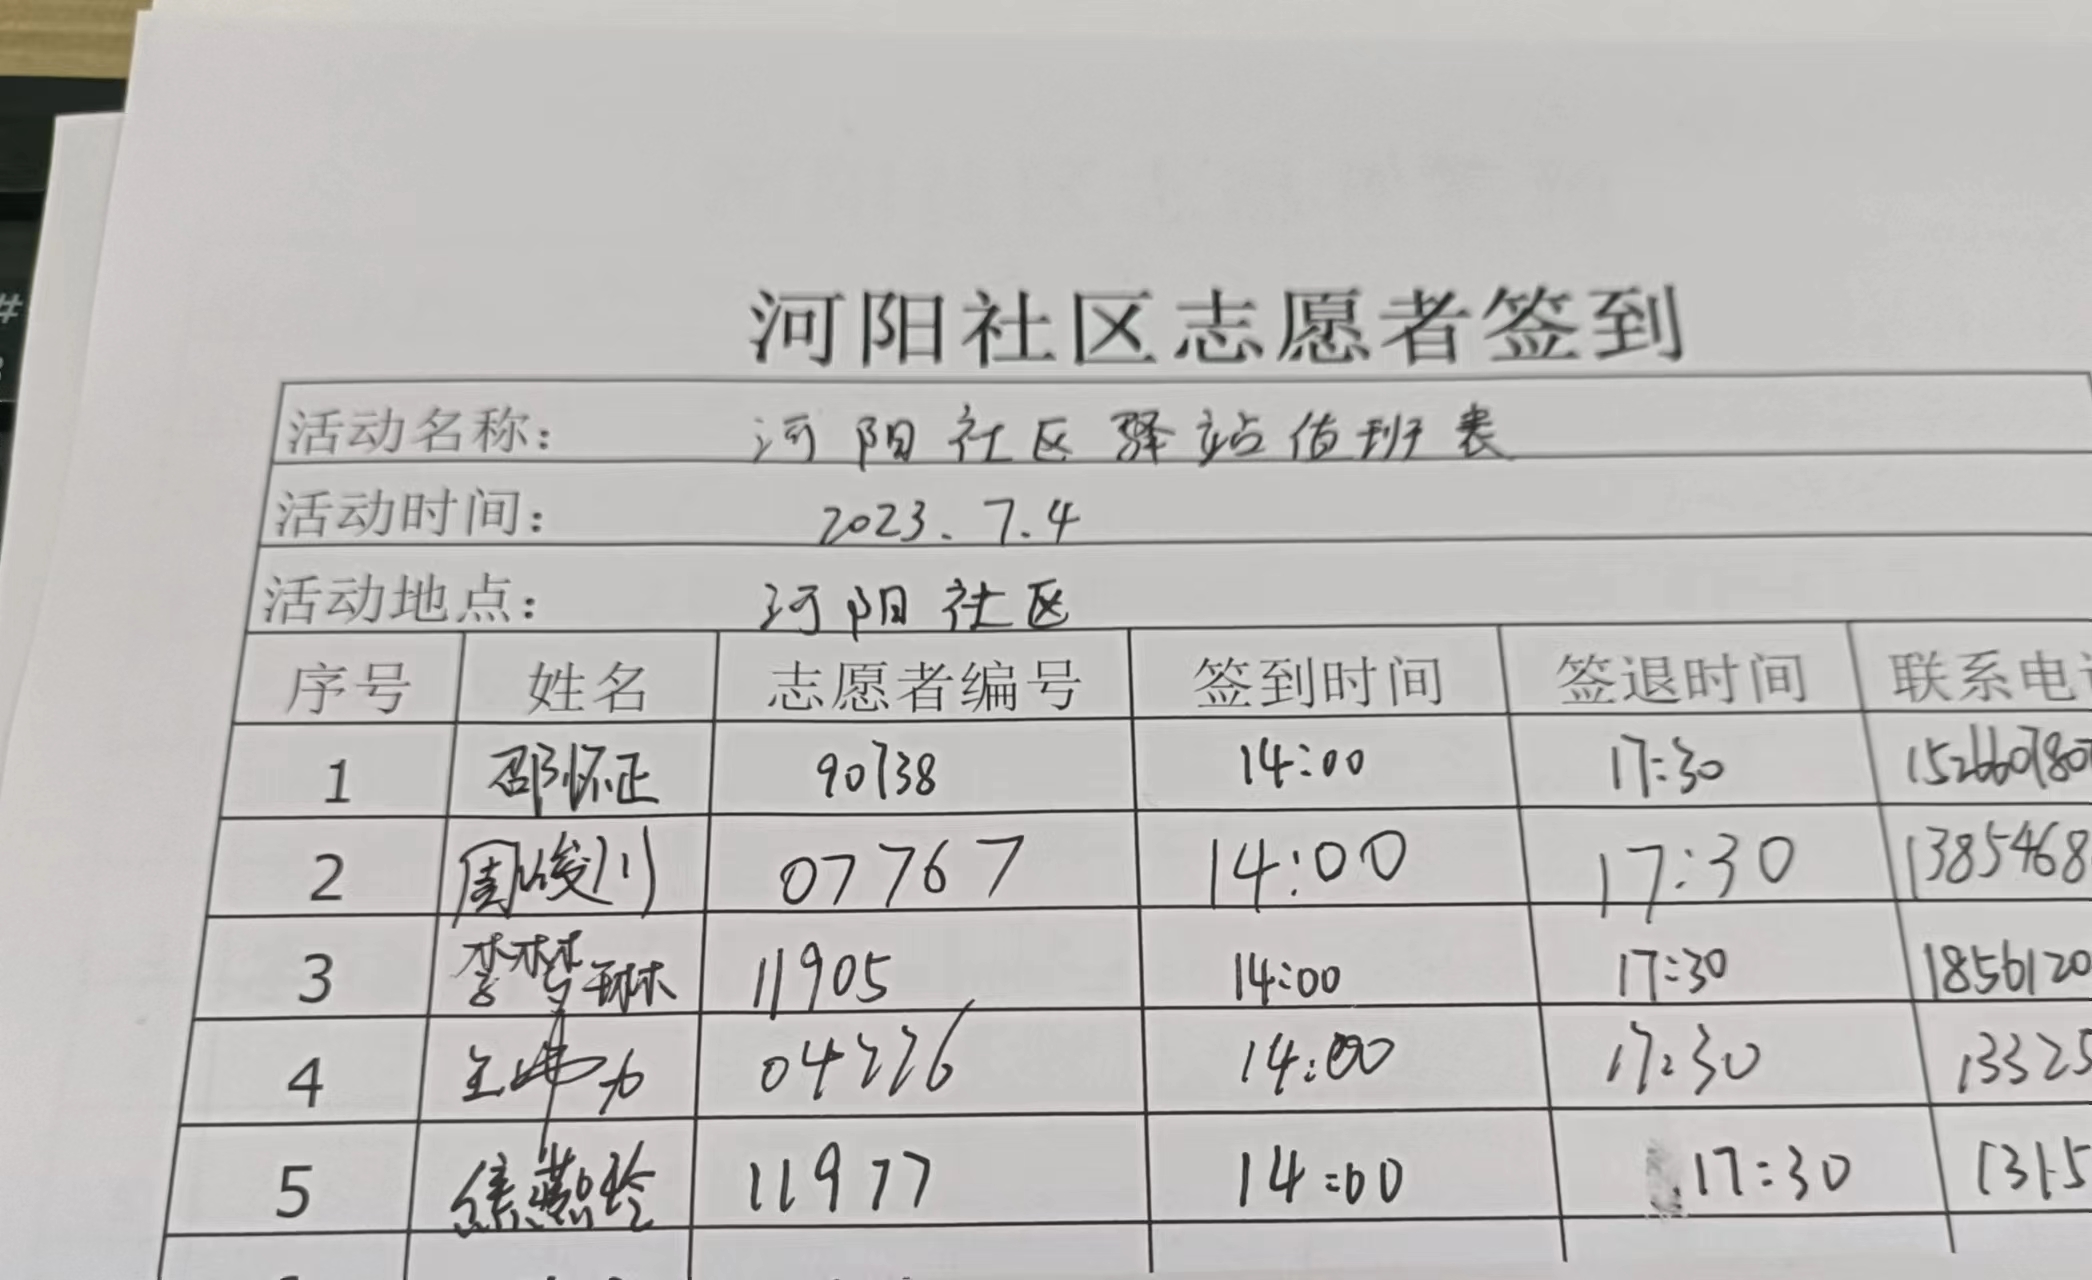 河阳社区志愿者签到
活动名称: 河阳社区驿站值班表
活动时间: 2023.7.4
活动地点: 河阳社区
序号 姓名 志愿者编号 签到时间 签退时间 联系电
1 邵怀正 90738 14:00 17:30 152660780
2 周峻川 07767 14:00 17:30 1385468
3 李梦琳 11905 14:00 17:30 1856120
4 王 04226 14:00 17:30 13325
5 焦燕玲 11977 14:00 17:30 1315
#